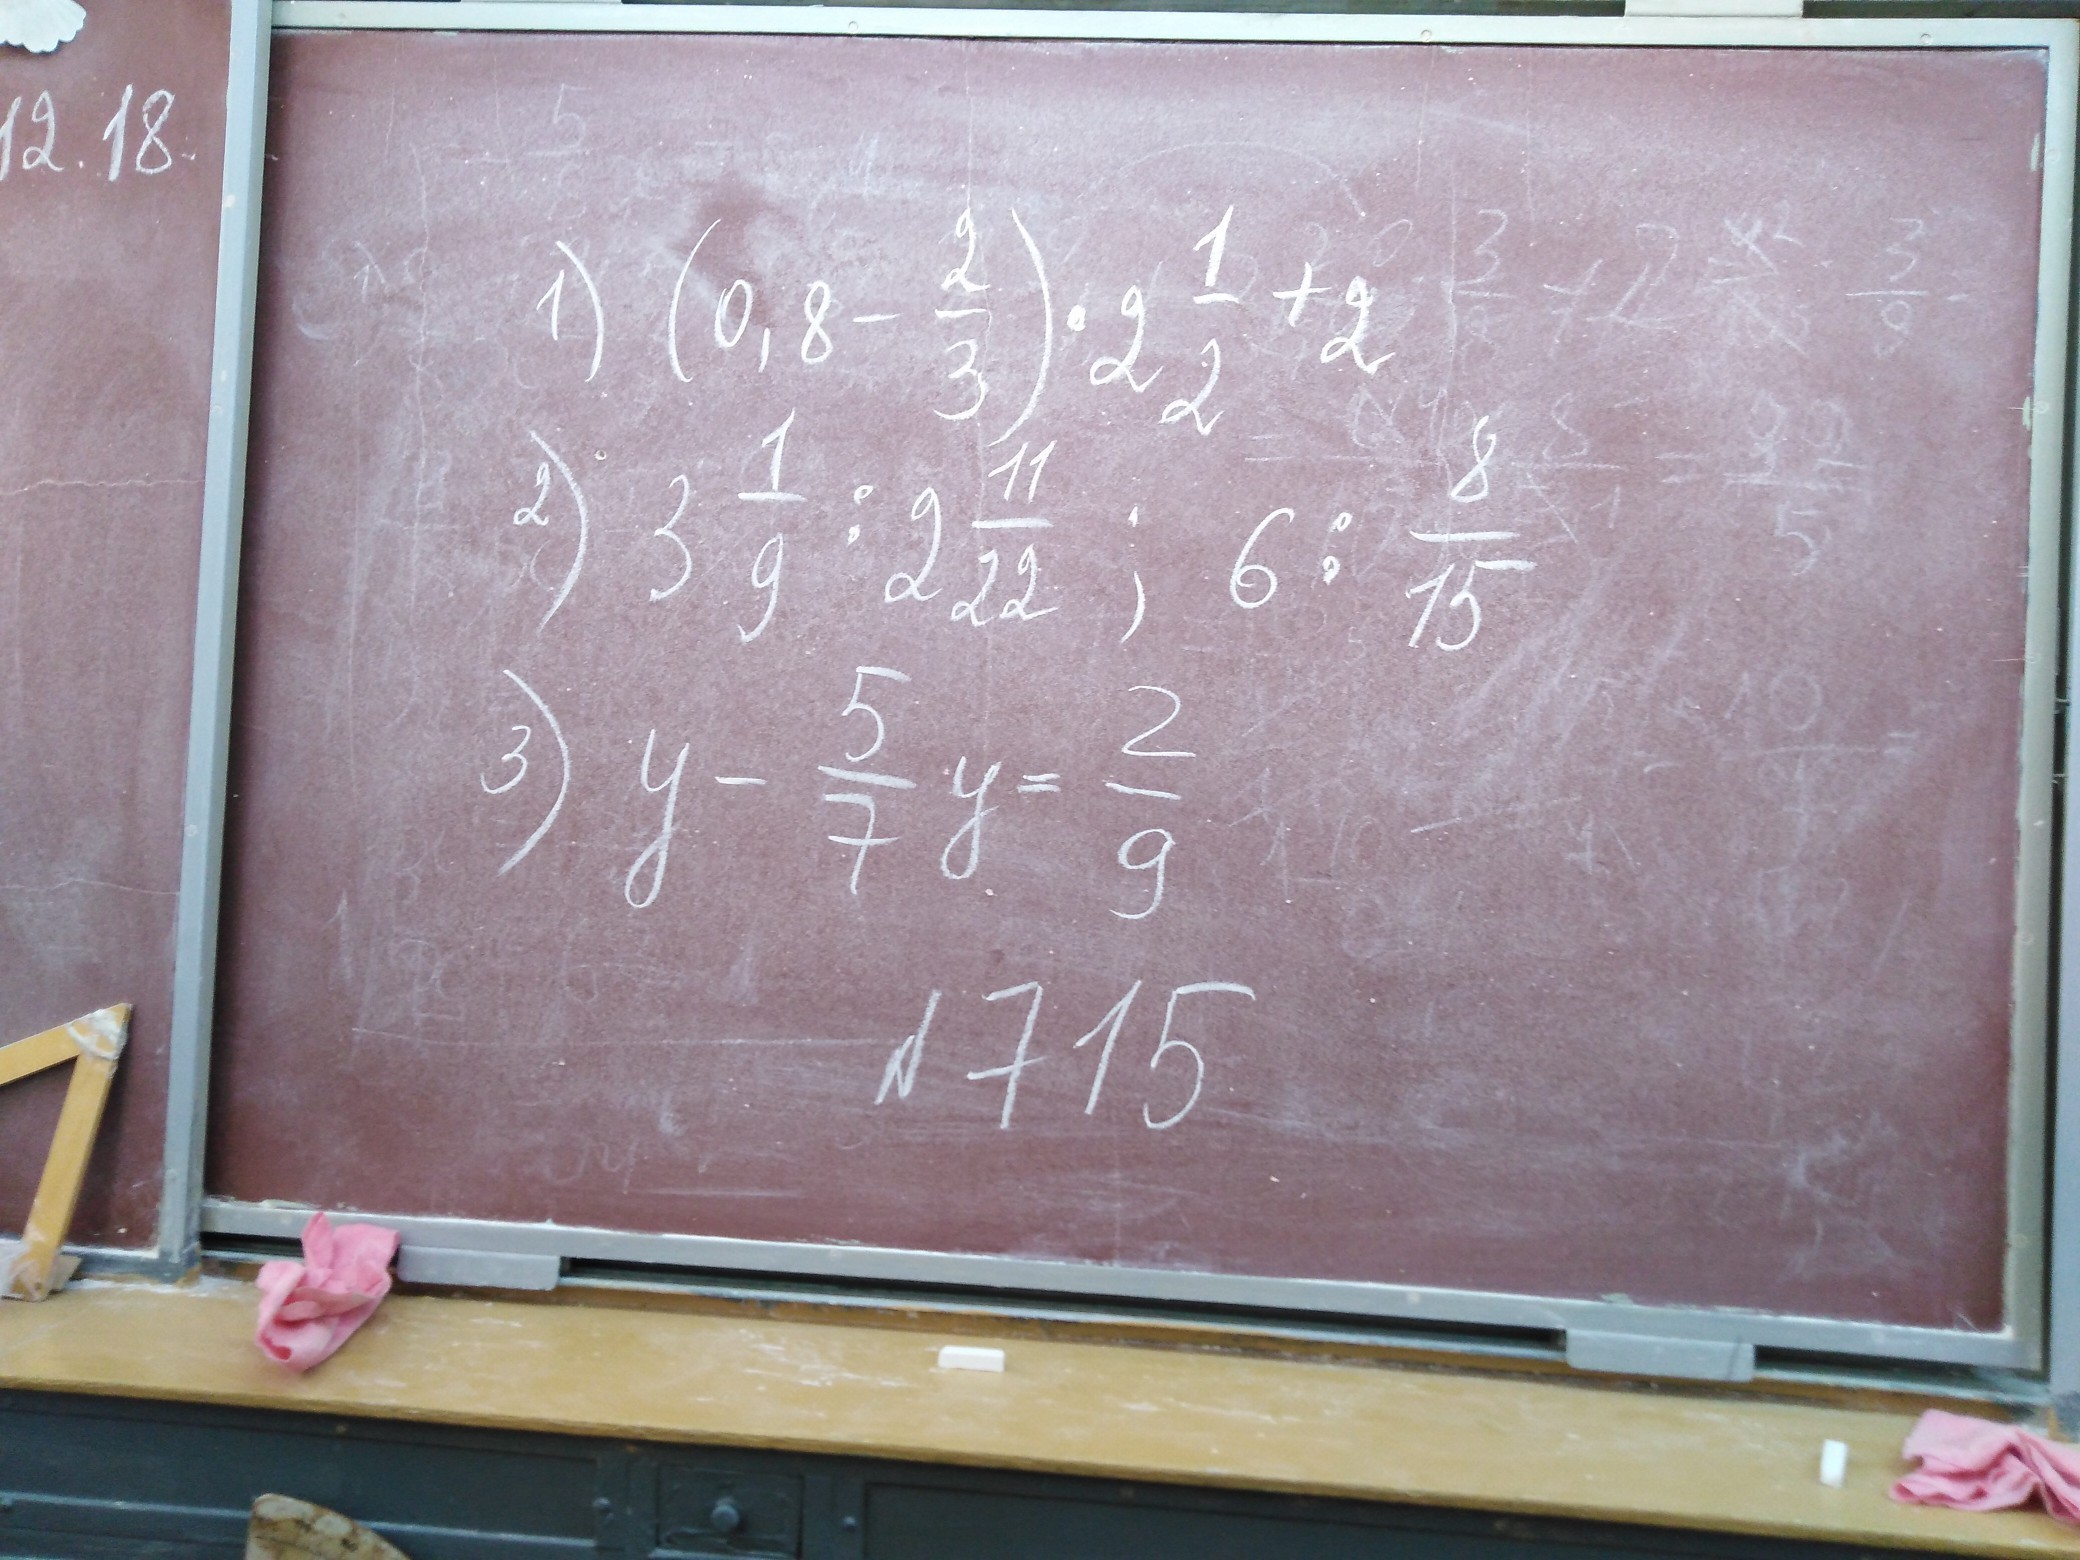 12.18.
1) (0,8 - 2/3) · 2 1/2 + 2
2) 3 1/9 : 2 11/22 ; 6 : 8/15
3) y - 5/7 y = 2/9
№715